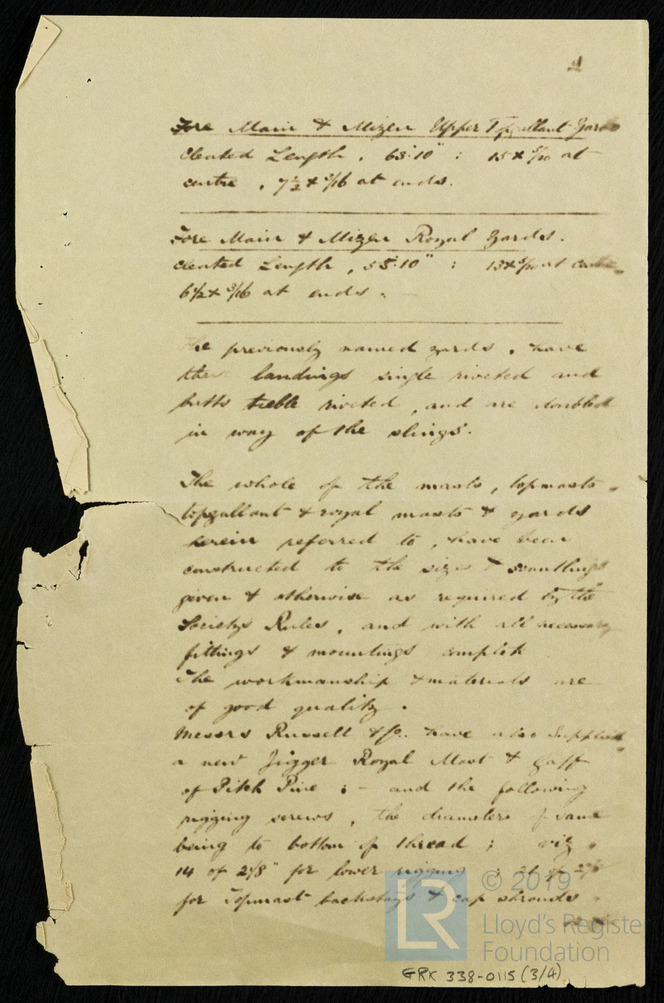 4
Fore Main & Mizen Upper Topgallant Yards
Cleated Length, 63'.10" : 15 x 5/20 at
centre, 7½ x 3/16 at ends.
Fore Main & Mizen Royal Yards.
Cleated Length, 53'.10" : 13 x at centre
6½ x 3/16 at ends.
The previously named yards, have
their landings single riveted and
butts treble riveted, and are doubled
in way of the slings.
The whole of the masts, topmasts,
topgallant & royal masts & yards
herein referred to, have been
constructed to the sizes & scantlings
given & otherwise as required by the
Societys Rules, and with all necessary
fittings & mountings complete
The workmanship & materials are
of good quality.
Messrs Russell & Co. have also supplied
a new Jigger Royal Mast & gaff
of Pitch Pine :- and the following
rigging screws, the diameters of same
being to bottom of thread ; viz.
14 of 2⅛" for lower rigging ;
for Topmast backstays & cap shrouds
© 2019
LR
Lloyd's Register
Foundation
GRK 338-0115 (3/4)